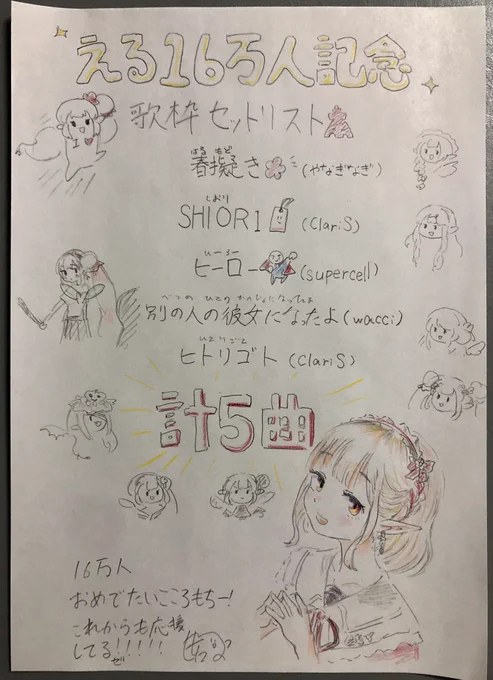 える16万人記念
歌枠セットリスト
はる もど
春擬き (やなぎなぎ)
しおり
SHIORI (ClariS)
ひーろー
ヒーロー (supercell)
べつの ひとの かのじょになったよ
別の人の彼女になったよ (wacci)
ひとりごと
ヒトリゴト (ClariS)
計5曲
16万人
おめでたいこころもちー!
これからも応援
してるぜ!!!!!